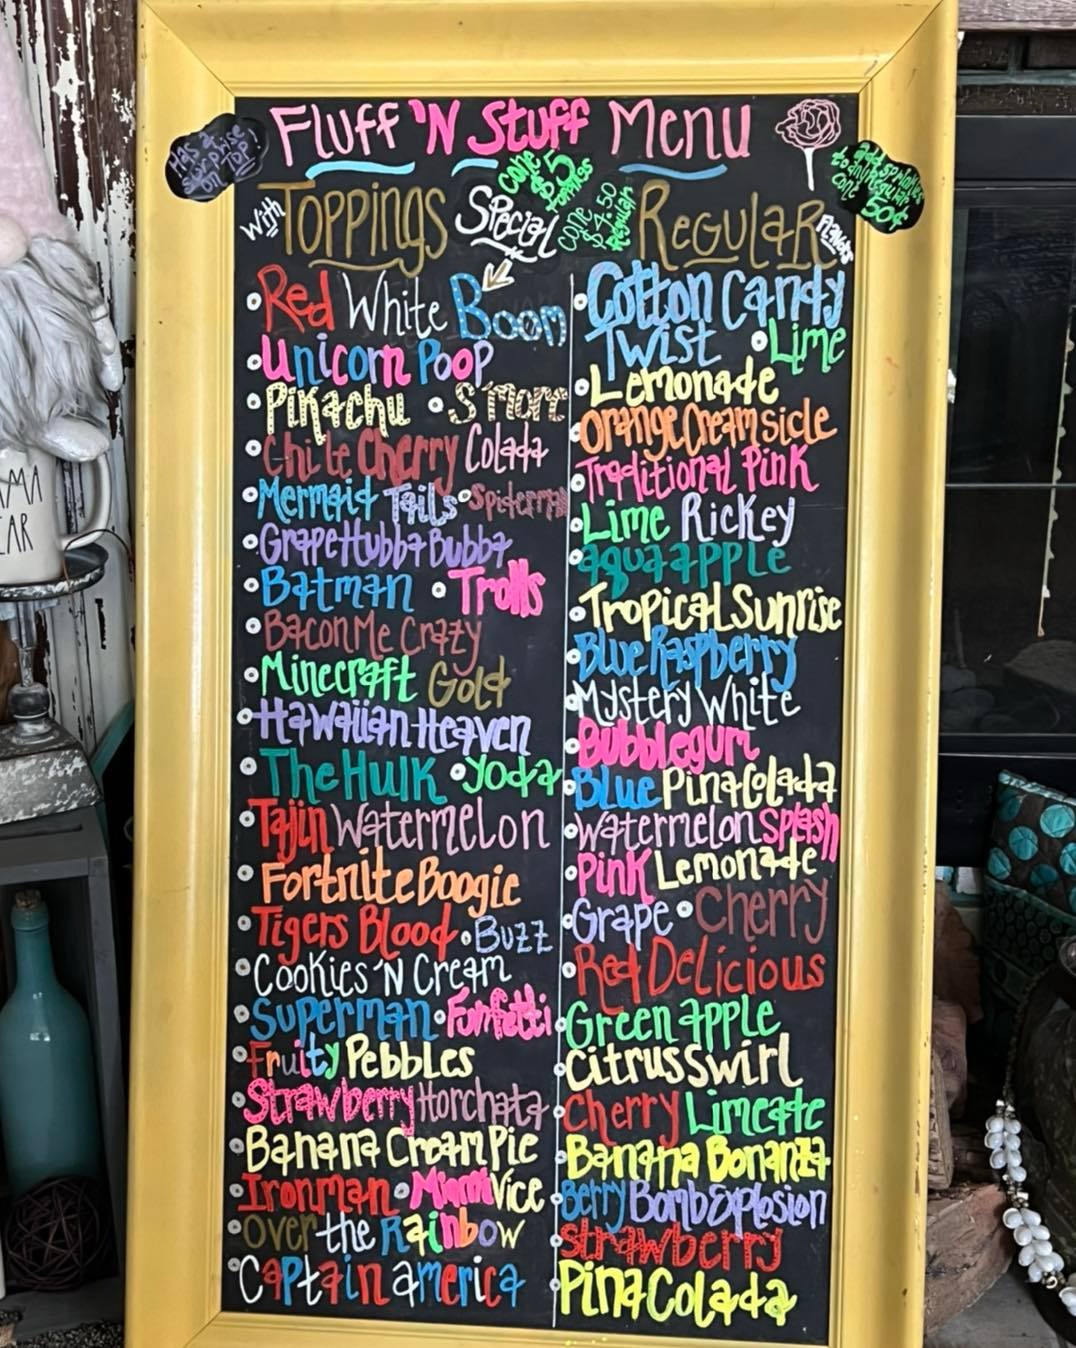 Fluff 'N Stuff Menu
Has a
surprise
on TOP!
Cone
$5
Toppings
add sprinkles
to any Regular
cone 50¢
With Toppings Special
Cone
$4.50
Regular
Regular Flavors
Red White Boom
Unicorn Poop
Pikachu S'more
Chi le Cherry Colada
Mermaid Tails Spiderman
Grape Hubba Bubba
Batman Trolls
Bacon Me Crazy
Minecraft Gold
Hawaiian Heaven
The Hulk Yoda
Tajin Watermelon
Fortnite Boogie
Tigers Blood Buzz
Cookies 'N Cream
Superman Funfetti
Fruity Pebbles
Strawberry Horchata
Banana Cream Pie
Ironman Miami Vice
Over the Rainbow
Captain america
Cotton Candy
Twist Lime
Lemonade
Orange Creamsicle
Traditional Pink
Lime Rickey
aqua apple
Tropical Sunrise
Blue Raspberry
Mystery White
Bubblegum
Blue Pina Colada
Watermelon Splash
Pink Lemonade
Grape Cherry
Red Delicious
Green apple
Citrus Swirl
Cherry Limeade
Banana Bonanza
Berry Bomb Explosion
Strawberry
Pina Colada